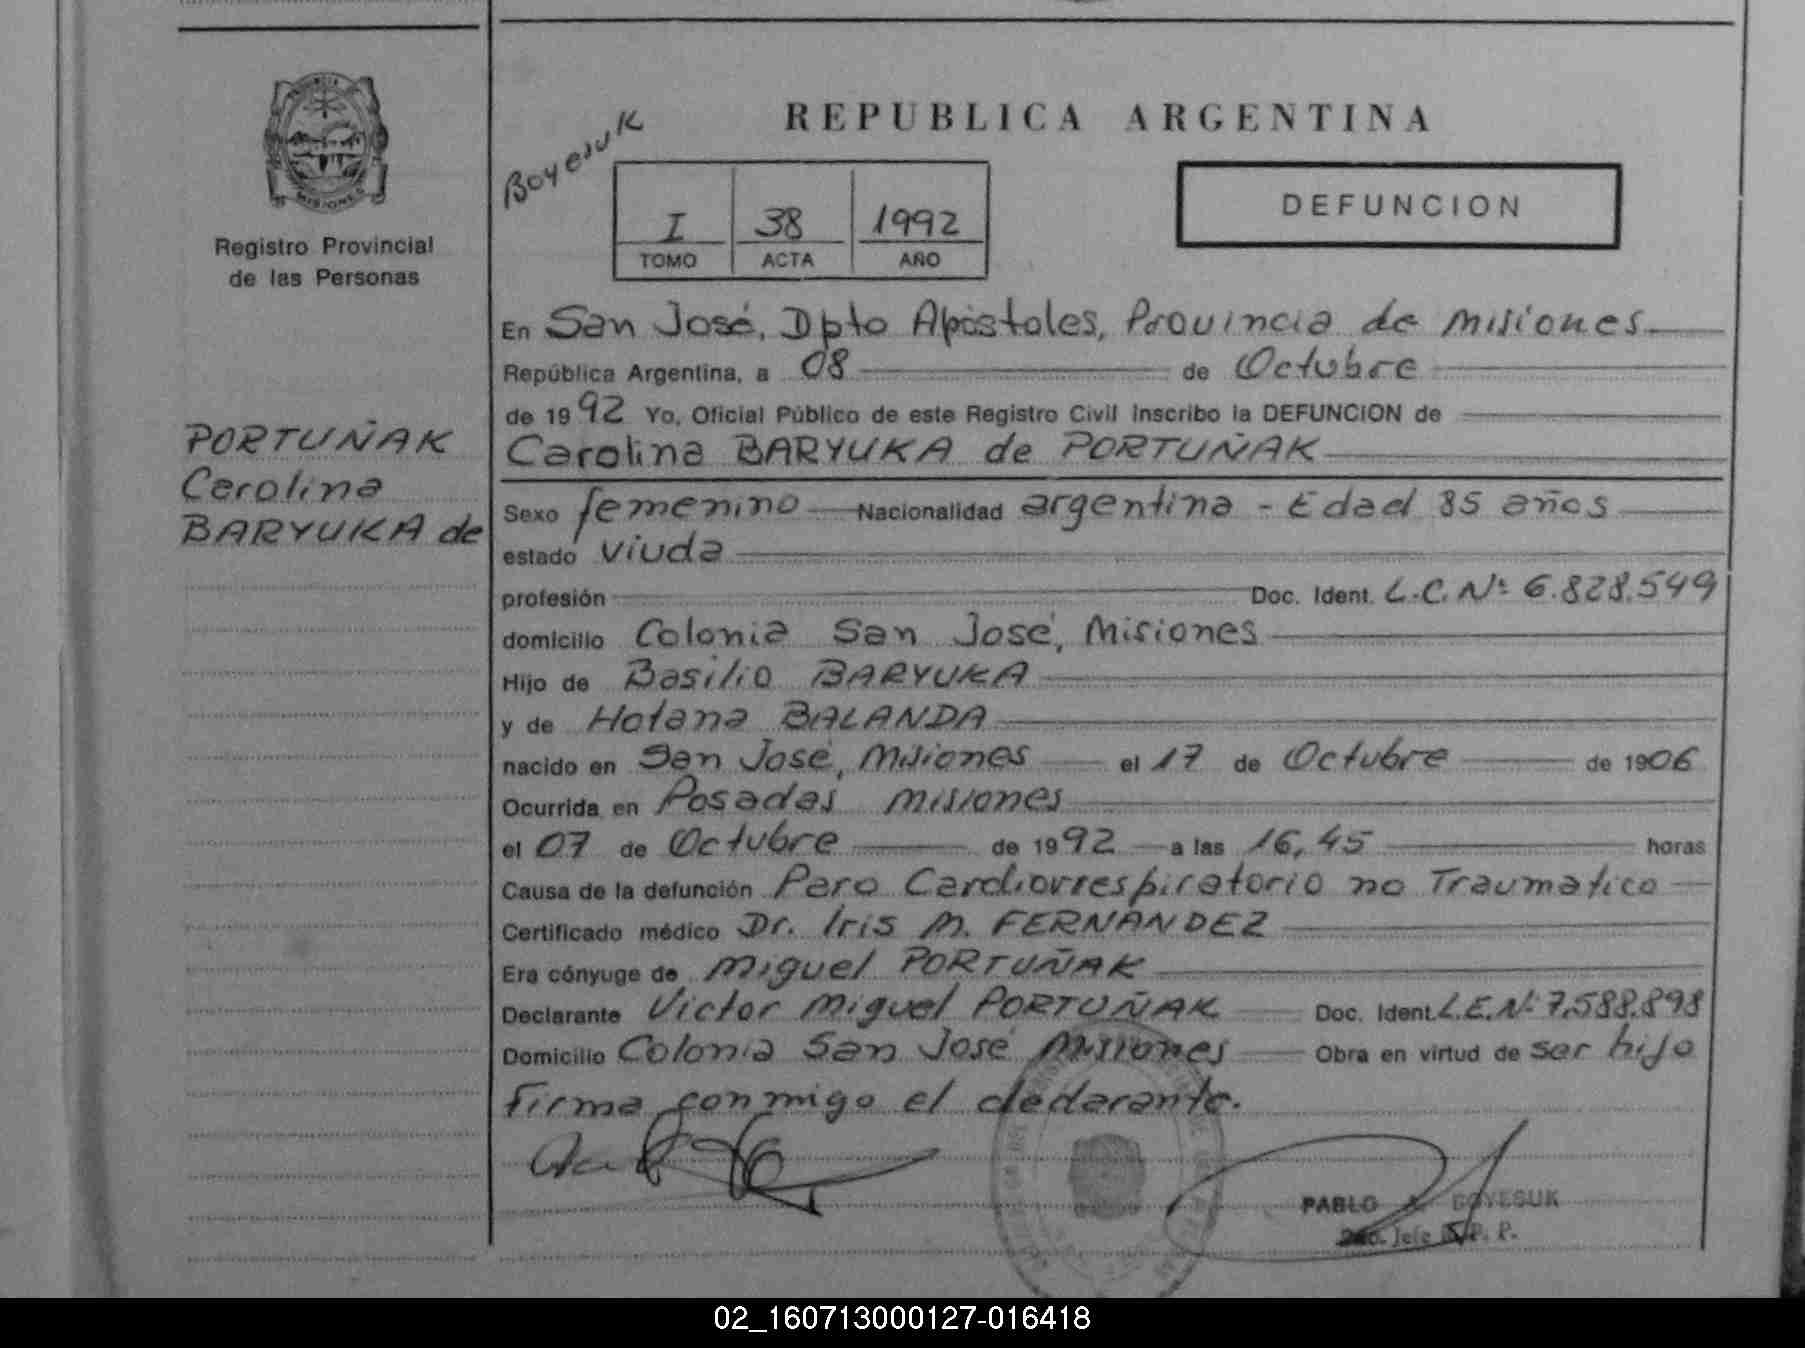 PROVINCIA
MISIONES
Registro Provincial
de las Personas
PORTUÑAK
Carolina
BARYUKA de
REPUBLICA ARGENTINA
Boyesuk
I 38 1992
TOMO ACTA AÑO
DEFUNCION
En San José, Dpto Apóstoles, Provincia de Misiones
República Argentina, a 08 de Octubre
de 1992 Yo, Oficial Público de este Registro Civil inscribo la DEFUNCION de
Carolina BARYUKA de PORTUÑAK
Sexo femenino Nacionalidad argentina - Edad 85 años
estado viuda
profesión Doc. Ident. L.C. Nº 6.828.549
domicilio Colonia San José, Misiones
Hijo de Basilio BARYUKA
y de Hotana BALANDA
nacido en San José, Misiones el 17 de Octubre de 1906
Ocurrida en Posadas Misiones
el 07 de Octubre de 1992 a las 16,45 horas
Causa de la defunción Paro Cardiorrespiratorio no Traumatico
Certificado médico Dr. Iris M. FERNANDEZ
Era cónyuge de Miguel PORTUÑAK
Declarante Victor Miguel PORTUÑAK Doc. Ident. L.E. Nº 7.588.898
Domicilio Colonia San José Misiones Obra en virtud de ser hijo
Firma conmigo el declarante.
PABLO BOYESUK
Jefe R. P. P.
02_160713000127-016418